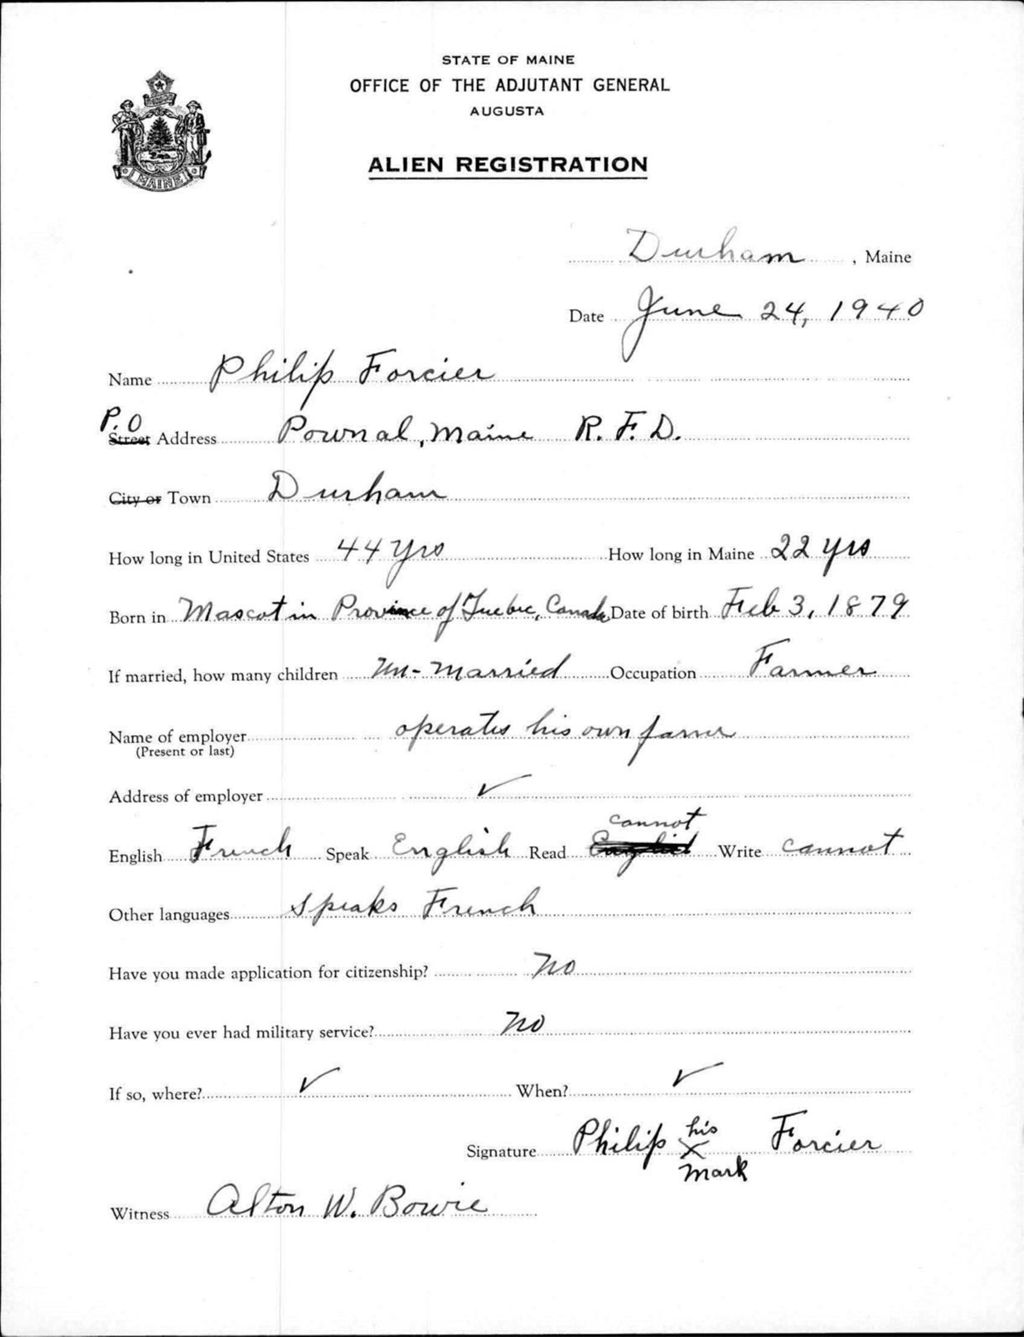 STATE OF MAINE
OFFICE OF THE ADJUTANT GENERAL
AUGUSTA
ALIEN REGISTRATION
MAINE
Durham, Maine
Date June 24, 1940
Name Philip Forcier
P.O
Street Address Pownal, Maine R.F.D.
City or Town Durham
How long in United States 44 yrs How long in Maine 22 yrs
Born in Mascot in Province of Quebec, Canada Date of birth Feb 3, 1879
If married, how many children Un-married Occupation Farmer
Name of employer operates his own farm
(Present or last)
Address of employer ✓
cannot
English French Speak English Read English Write cannot
Other languages Speaks French
Have you made application for citizenship? No
Have you ever had military service? No
If so, where? ✓ When? ✓
Signature Philip his X mark Forcier
Witness Alton W. Bowie